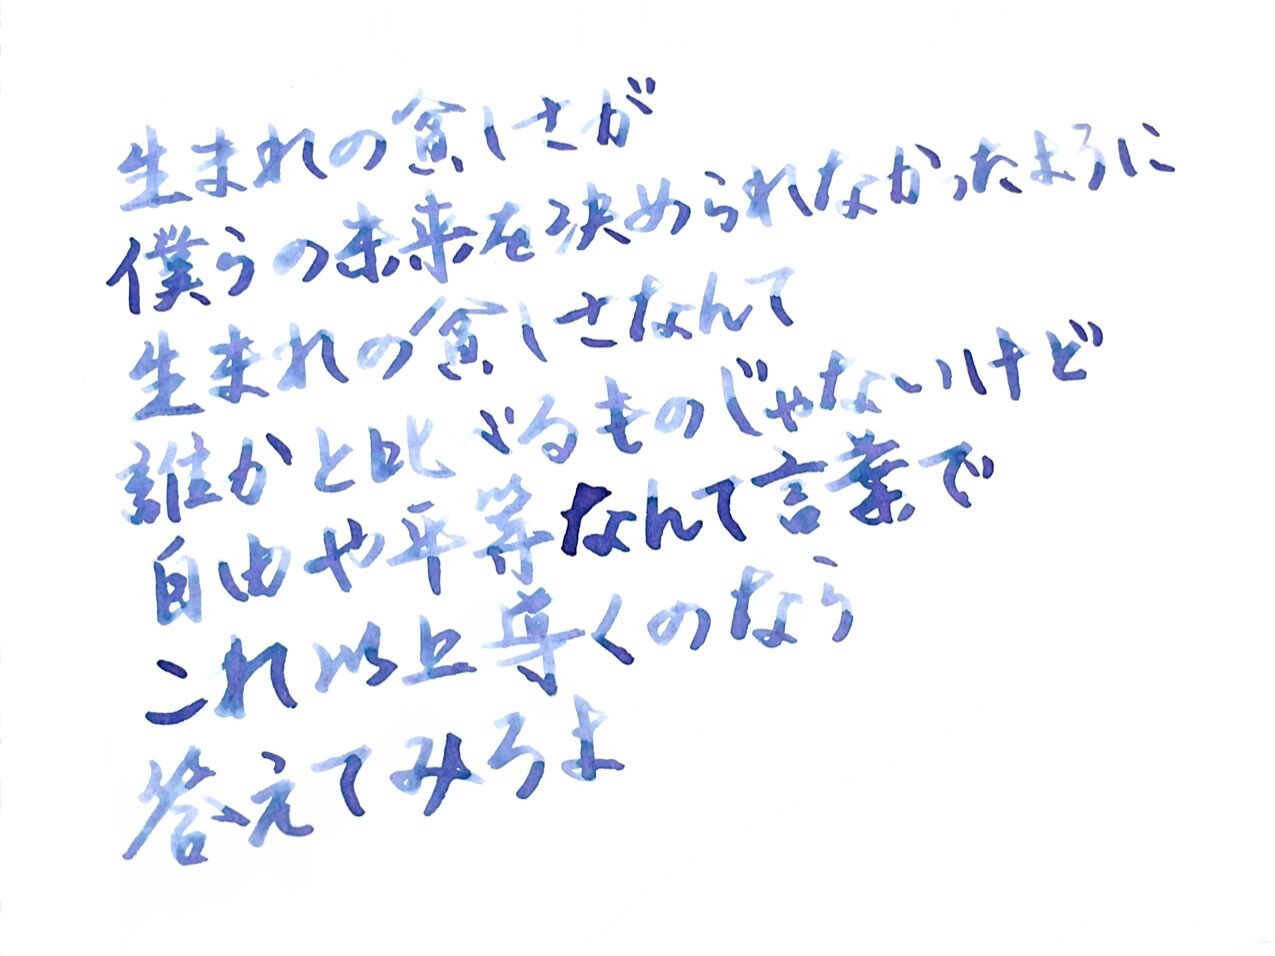 生まれの貧しさが
僕らの未来を決められなかったように
生まれの貧しさなんて
誰かと比べるものじゃないけど
自由や平等なんて言葉で
これ以上導くのなら
答えてみろよ